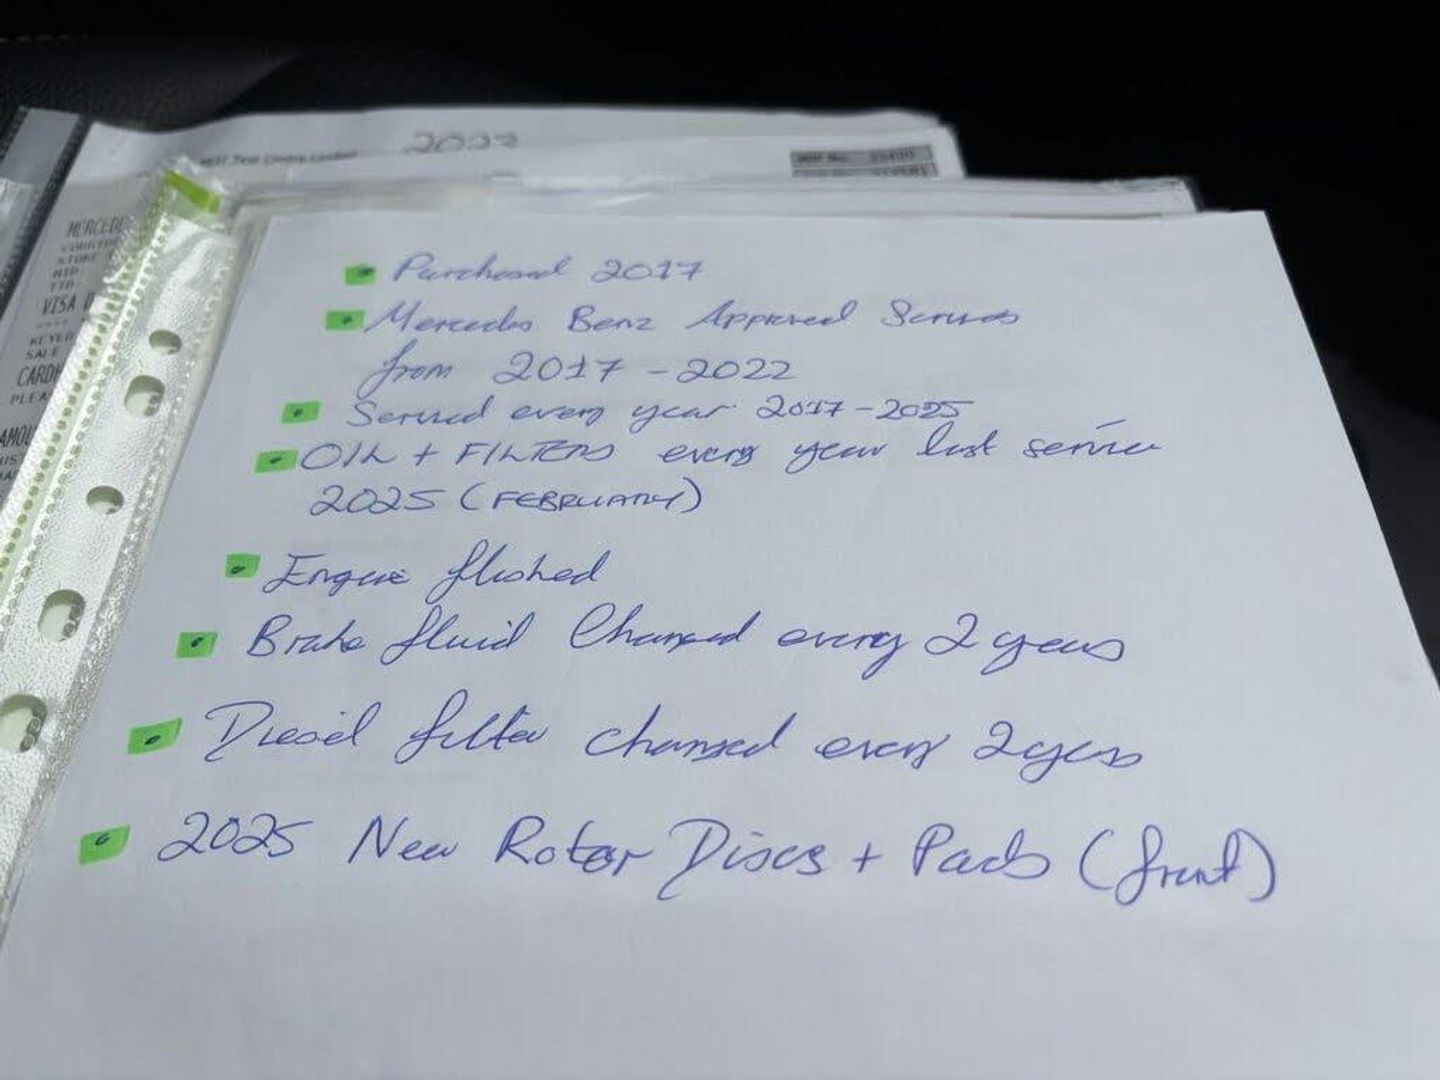 2023
MOT Test Centre Limited
MERCEDE
STORE
MID
TID
VISA D
KEYED
SALE
CARDH
PLEA
AMOU
Purchased 2017
Mercedes Benz Approved Services
from 2017 - 2022
Serviced every year 2017 - 2025
OIL + FILTERS every year last service
2025 (FEBRUARY)
Engine flushed
Brake fluid Changed every 2 years
Diesel filter changed every 2 years
2025 New Rotor Discs + Pads (front)